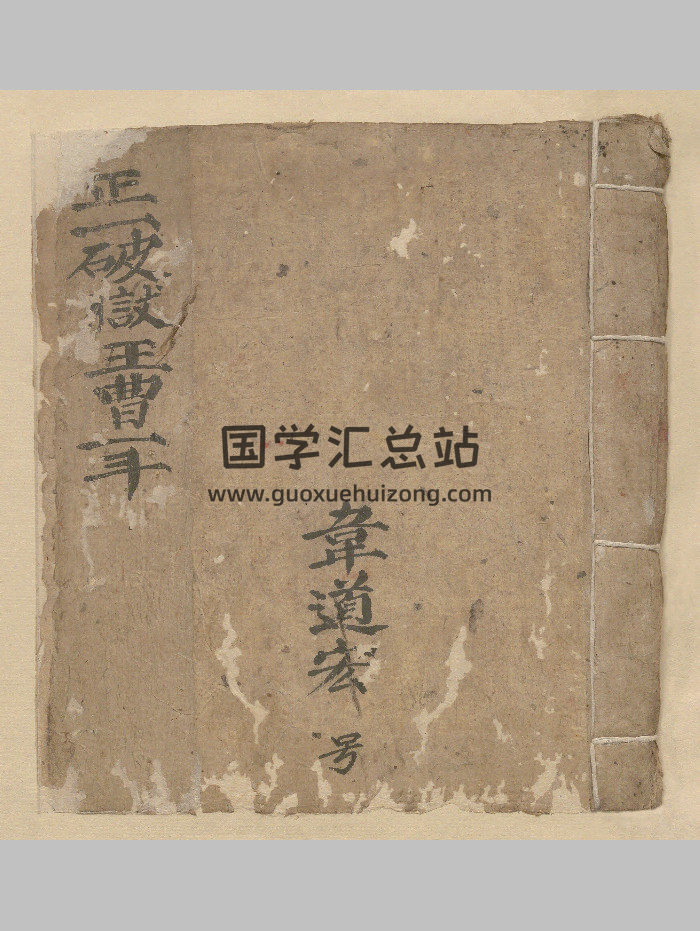 国学汇总站
www.guoxuehuizong.com
韋道宏号
正一破獄王曹一